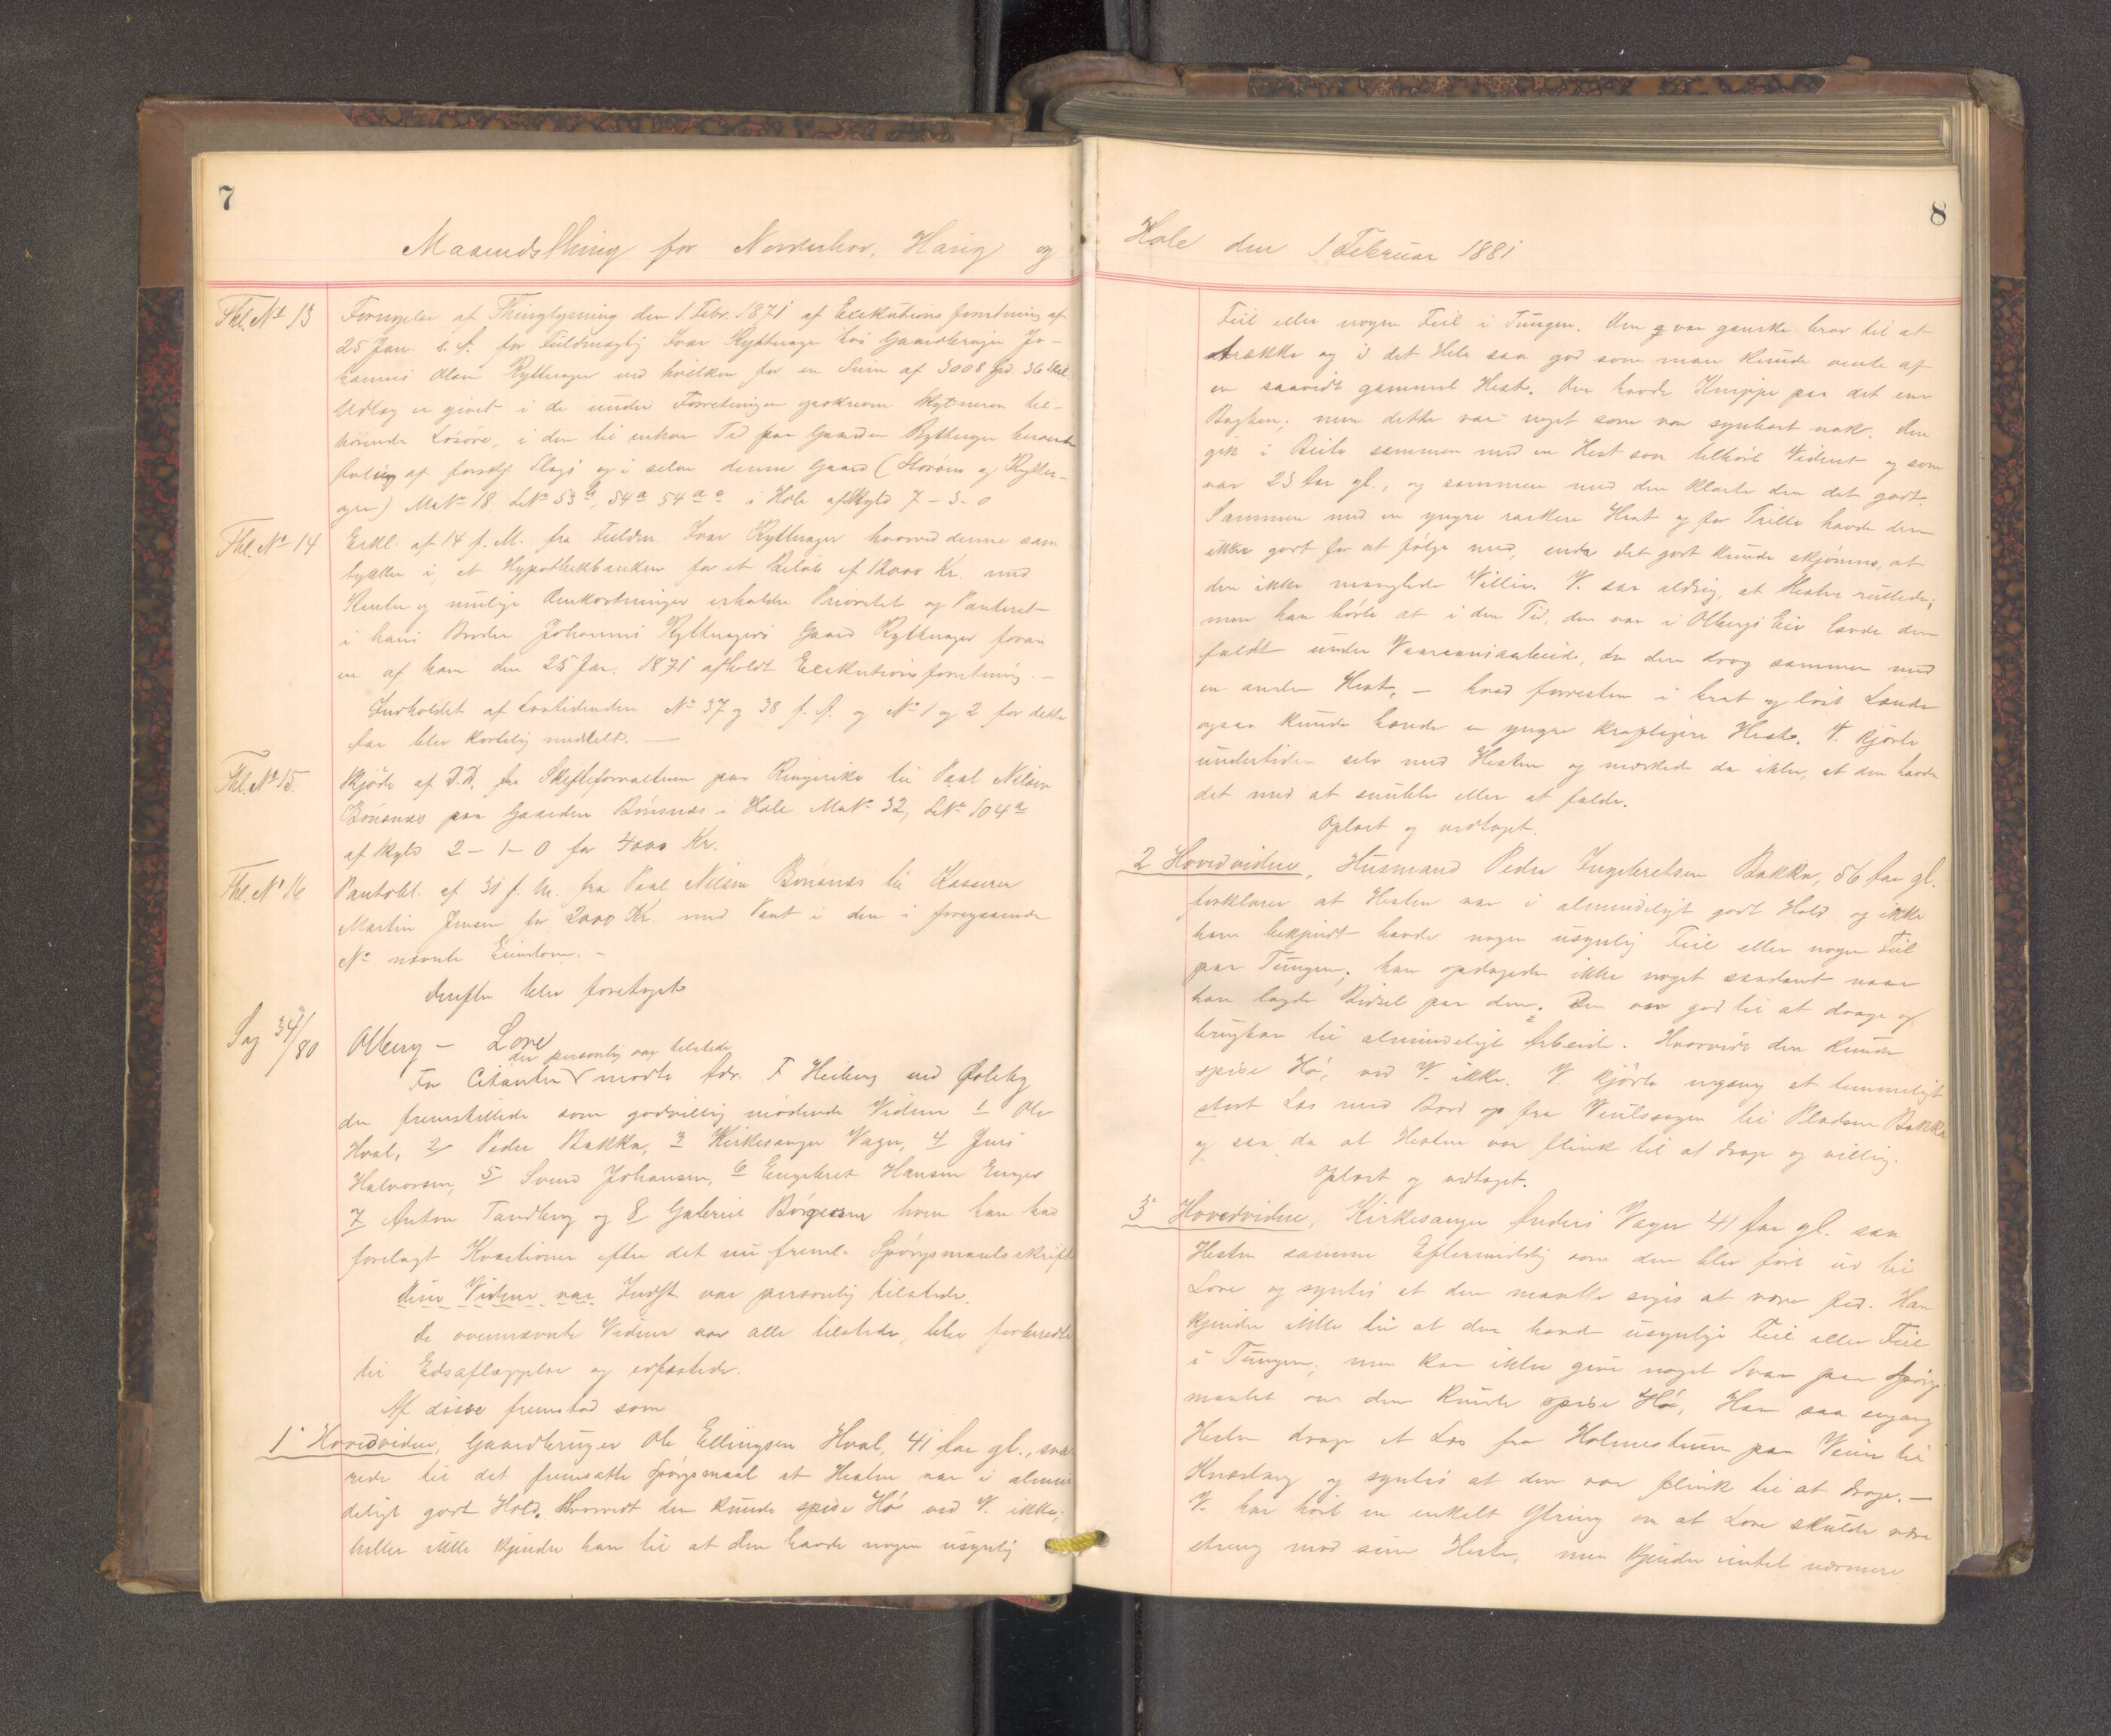 7
Maanedsthing for Norderhov, Haug og
Thl. No 13 Fornyelse af Thinglysning den 1 Febr. 1871 af Exekutionsforretning af
25 Jan. s. A. for Fuldmægtig Ivar Rytterager hos Gaardbruger Jo-
hannes Olsen Rytterager ved hvilken for en Sum af 3008 Spd. 36 Skil.
Udlæg er givet i de under Forretningen opskrevne Skyldneren til-
hørende Løsøre, i den til enhver Tid paa Gaarden Rytterager beroende
Avling af forskj. Slags og i selve denne Gaard (Storøen og Rytter-
ager) MaNo 18, LNo 53 b, 54 a 54 a a i Hole afskyld 7 - 3 - 0
Thl. No 14 Erkl. af 14 f. M. fra Fuldm. Ivar Rytterager hvorved denne sam
tykker i, at Hypothekbanken for et Beløb af 12000 Kr. med
Renter og mulige Omkostninger erholder Prioritet og Panteret
i hans Broder Johannes Rytteragers Gaard Rytterager foran
en af ham den 25 Jan. 1871 afholdt Exekutionsforretning. -
Indholdet af Lovtidenden No 37 og 38 f. A. og No 1 og 2 for dette
Aar blev kortelig meddelt. -
Thl. No 15. Skjøde af D.D. fra Skifteforvalteren paa Ringerike til Paal Nilsen
Bønsnæs paa Gaarden Bønsnæs i Hole MaNo 32, LNo 104 a
af Skyld 2 - 1 - 0 for 4000 Kr.
Thl. No 16 Pantobl. af 31 f. M. fra Paal Nilsen Bønsnæs til Kasserer
Martin Jensen for 2000 Kr. med Pant i den i foregaaende
No nævnte Eiendom. -
Derefter blev foretaget
Sag 34/80 Olberg - Lore
der personlig var tilstede
For Citanten mødte Adv. F Heiberg ved Østeby
der fremstillede som godvillig mødende Vidner 1 Ole
Hval, 2 Peder Bakka, 3 Kirkesanger Vager, 4 Jens
Halvorsen, 5 Svend Johansen, 6 Engebret Hansen Enger
7 Anton Tandberg og 8 Gabriel Børgesen hvem han bad
forelagt Kvæstioner efter det nu freml. Spørgsmaalsskrift
disse Vidner var Indst var personlig tilstede.
De ovennævnte Vidner var alle tilstede, blev forberedte
til Edsaflæggelse og edfæstede.
Af disse fremstod som
1 Hovedvidne, Gaardbruger Ole Ellingsen Hval, 41 Aar gl., sva
rede til det fremsatte Spørgsmaal at Hesten var i almin
deligt godt Hold. Hvorvidt den kunde spise Hø ved V. ikke;
heller ikke kjender han til at den havde nogen usynlig
8
Hole den 1 Februar 1881
Feil eller nogen Feil i Tungen. Den var ganske brav til at
trække og i det Hele saa god som man kunde vente af
en saavidt gammel Hest. Den havde Knippe paa det ene
Bagben; men dette var noget som var synbart nok. Den
gik i Beile sammen med en Hest som tilhørte Vidnet og som
var 23 Aar gl., og sammen med den klarte den det godt.
Sammen med en yngre raskere Hest og for Trille havde den
ikke godt for at følge med, enda det godt kunde skjønnes, at
den ikke manglede Villie. V. saa aldrig, at Hesten snublede;
men han hørte at i den Tid, den var i Olbergs Eie havde den
faldt under Vaaraansarbeide, da den drog sammen med
en anden Hest, - hvad forresten i brat og løst Lænde
ogsaa kunde hænde en yngre kraftigere Hest. V. kjørte
undertiden selv med Hesten og mærkede da ikke, at den havde
det med at snuble eller at falde.
Oplæst og vedtaget.
2 Hovedvidne, Husmand Peder Ingebretsen Bakka, 56 Aar gl.
forklarer at Hesten var i almindeligt godt Hold og ikke
ham bekjendt havde nogen usynlig Feil eller nogen Feil
paa Tungen; han opdagede ikke noget saadant naar
han lagde Bidsel paa den. Den var god til at drage og
brugbar til almindeligt Arbeide. Hvorvidt den kunde
spise Hø, ved V. ikke. V. kjørte engang et temmeligt
stort Læs med Bord op fra Veulsaagen til Pladsen Bakka
og saa da at Hesten var flink til at drage og villig.
Oplæst og vedtaget.
3 Hovedvidne, Kirkesanger Anders Vager 41 Aar gl. saa
Hesten samme Eftermiddag som den blev ført ud til
Lore og syntes at den maatte siges at være fed. Han
kjender ikke til at den havde usynlige Feil eller Feil
i Tungen; men kan ikke give noget Svar paa Spørgs
maalet om den kunde spise Hø, Han saa engang
Hesten drage et Læs fra Holmestrum paa Veien til
Knæstang og syntes at den var flink til at drage. -
V. har hørt en enkelt Ytring om at Lore skulde være
streng mod sine Heste, men kjender intet nærmere